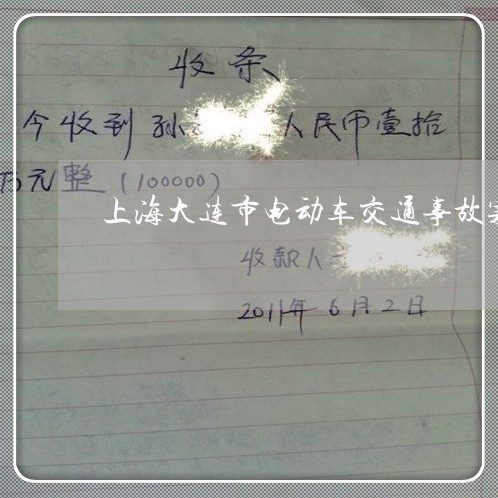 收条
今收到孙 人民币壹拾
万元整(100000)
上海大连市电动车交通事故
收款人
2011年6月2日